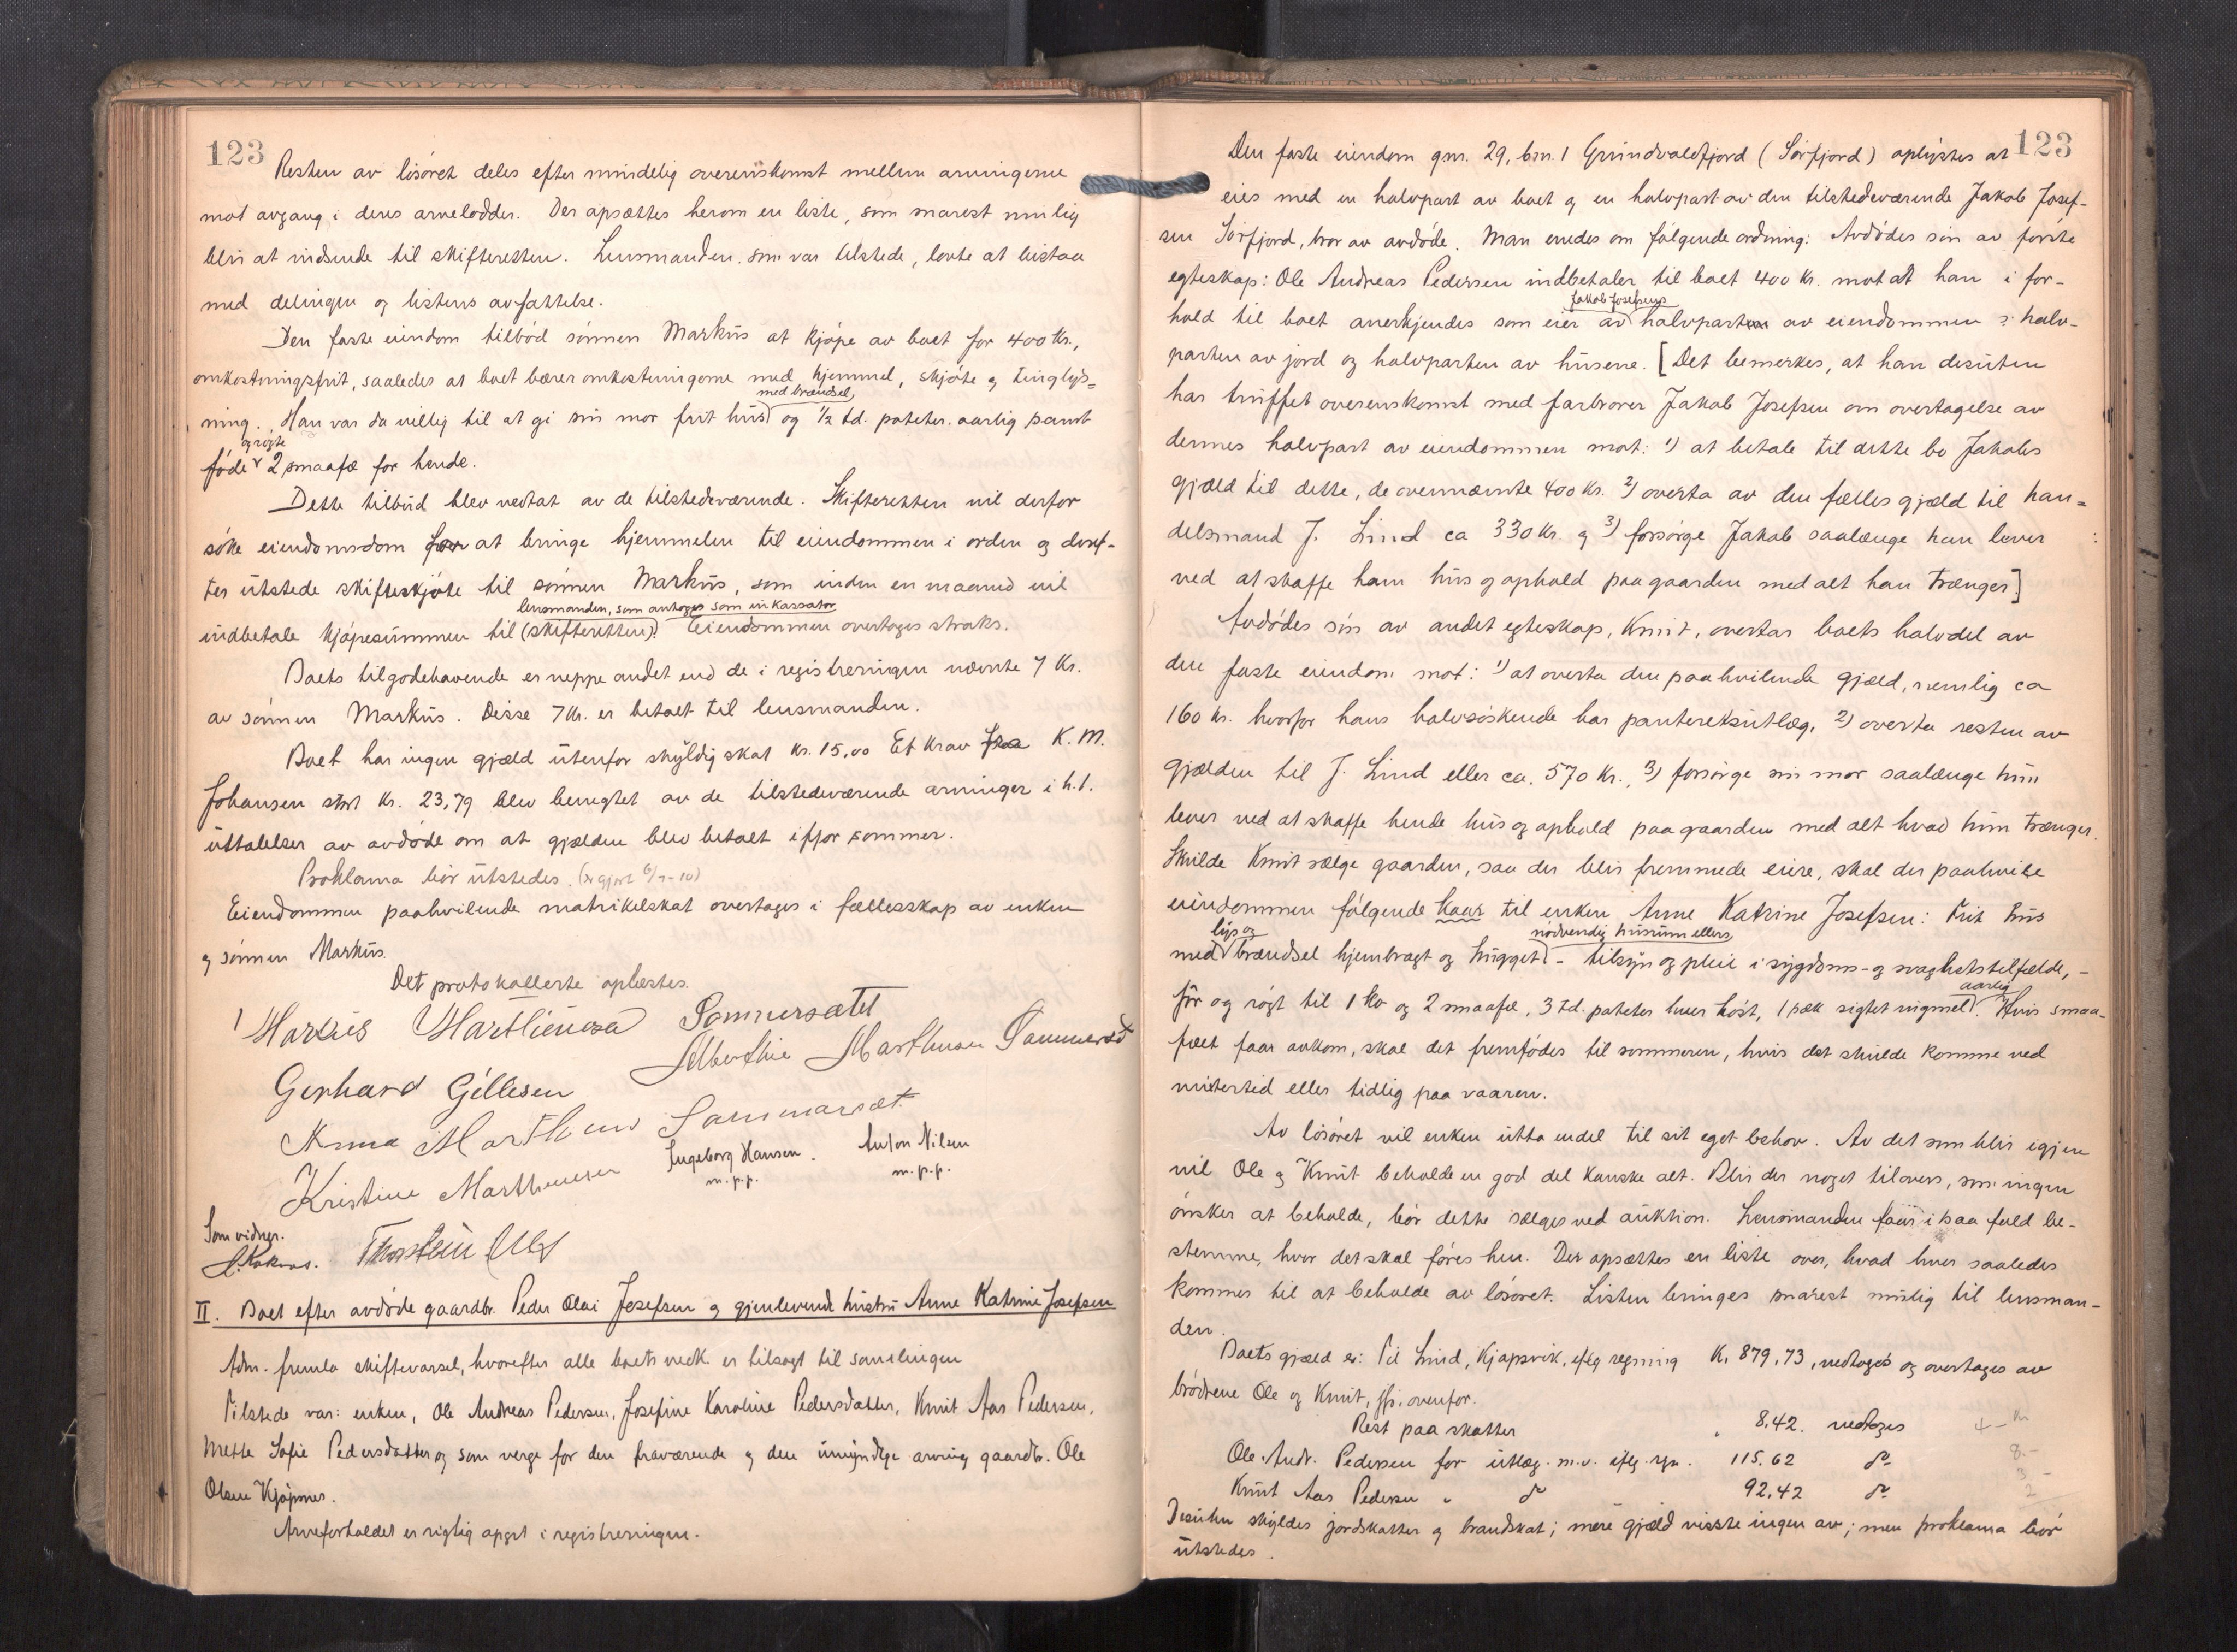 123
Resten av lösöret deles efter mindelig overenskomst mellem arvingerne
mot avgang i deres arvelodder. Der opsættes herom en liste, som snarest mulig
blir at indsende til skifteretten. Lensmanden, som var tilstede, lovte at bistaa
med delingen og listens avfattelse.
Den faste eiendom tilböd sönnen Markus at kjöpe av boet for 400 kr.,
omkostningsfrit, saaledes at boet bærer omkostningerne med hjemmel, skjöte og tinglys=
ning. Han var da villig til at gi sin mor frit hus med brændsel, og 1/2 td. poteter aarlig samt
föde og røgte 2 smaafæ for hende.
Dette tilbud blev vedtat av de tilstedeværende. Skifteretten vil derfor
söke eiendomsdom for at bringe hjemmelen til eiendommen i orden og deref-
ter utstede skifteskjöte til sönnen Markus, som inden en maaned vil
indbetale kjöpesummen til (skifteretten) lensmanden, som antoges som inkassator. Eiendommen overtages straks.
Boets tilgodehavende er neppe andet end de i registreringen nævnte 7 kr.
av sönnen Markus. Disse 7 kr. er betalt til lensmanden.
Boet har ingen gjæld utenfor skyldig skat kr. 15,00 Et krav fra K. M.
Johansen stort kr. 23,79 blev benegtet av de tilstedeværende arvinger i h.t.
uttalelser av avdöde om at gjælden blev betalt ifjor sommer.
Proklama bör utstedes. (er gjort 6/7-10)
Eiendommen paahvilende matrikelskat overtages i fællesskap av enken
og sönnen Markus.
Det protokollerte oplæstes.
Markus Marthenssen Sommersætet
Albertine Marthensen Sommersæt
Gerhard Gillesen
Anna Marthens Sommersæt
Kristine Marthensen Ingeborg Hansen. m.p.p. Anton Nilsen m.p.p.
Som vidner.
Thorstein
II. Boet efter avdöde gaardbr. Peder Olai Josefsen og gjenlevende hustru Anne Katrine Josefsen
Adm. fremla skiftevarsel, hvorefter alle boets vedk. er tilsagt til samlingen
Tilstede var: enken, Ole Andreas Pedersen, Josefine Karoline Pedersdatter, Knut Aas Pedersen,
Mette Sofie Pedersdatter og som verge for den fraværende og den umyndige arving gaardbr. Ole
Olsen Kjöpsnes.
Arveforholdet er rigtig opgit i registreringen.
123
Den faste eiendom gnr. 29, bnr. 1 Grundvaldfjord (Sörfjord) oplystes at
eies med en halvpart av boet og en halvpart av den tilstedeværende Jakob Josef-
sen Sörfjord, bror av avdöde. Man enedes om fölgende ordning: Avdödes sön av förste
egteskap: Ole Andreas Pedersen indbetaler til boet 400 kr. mot at han i for-
hold til boet anerkjendes som eier av Jakob Josefsens halvpart av eiendommen ɔ: halv-
parten av jord og halvparten av husene. [Det bemerkes, at han desuten
har truffet overenskomst med farbroren Jakob Josefsen om overtagelse av
dennes halvpart av eiendommen mot: 1) at betale til dette bo Jakobs
gjæld til dette, de ovennævnte 400 kr. 2) overta av den fælles gjæld til han=
delsmand J. Lind ca 330 kr. og 3) forsörge Jakob saalænge han lever
ved at skaffe ham hus og ophold paa gaarden med alt han trænger]
Avdödes sön av andet egteskap, Knut, overtar boets halvdel av
den faste eiendom mot: 1) at overta den paahvilende gjæld, nemlig ca
160 kr. hvorfor hans halvsöskende har panteretsutlæg, 2) overta resten av
gjælden til J. Lind eller ca. 570 kr., 3) forsörge sin mor saalænge hun
lever ved at skaffe hende hus og ophold paa gaarden med alt hvad hun trænger.
Skulde Knut sælge gaarden, saa der blir fremmede eiere, skal der paahvile
eiendommen fölgende kaar til enken Anne Katrine Josefsen: Frit hus
med lys og brændsel hjembragt og hugget - nödvendig husrum ellers, tilsyn og pleie i sygdoms- og svaghetstilfælde, -
fór og rögt til 1 ko og 2 smaafæ, 3 td. poteter hver höst, 1 sæk sigtet rugmel aarlig. Hvis smaa-
fæet faar avkom, skal det fremfödes til sommeren, hvis det skulde komme ved
vintertid eller tidlig paa vaaren.
Av lösöret vil enken utta endel til sit eget behov. Av det som blir igjen
vil Ole og Knut beholde en god del kanske alt. Blir der noget tilovers, som ingen
önsker at beholde, bör dette sælges ved auktion. Lensmanden faar i saa fald be-
stemme, hvor det skal föres hen. Der opsættes en liste over, hvad hver saaledes
kommer til at beholde av lösöret. Listen bringes snarest mulig til lensman-
den.
Boets gjæld er: Til Lind, Kjöpsvik, eflg regning kr. 879,73, vedtoges og overtages av
brödrene Ole og Knut, jfr. ovenfor.
Rest paa skatter " 8,42. vedtoges 4 - kr
Ole Andr. Pedersen for utlæg m.v. iflg. rgn. 115.62 do 8.-
Knut Aas Pedersen " do 92,42 do
Desuten skyldes jordskatter og brandskat; mere gjæld visste ingen av; men proklama bör
utstedes.